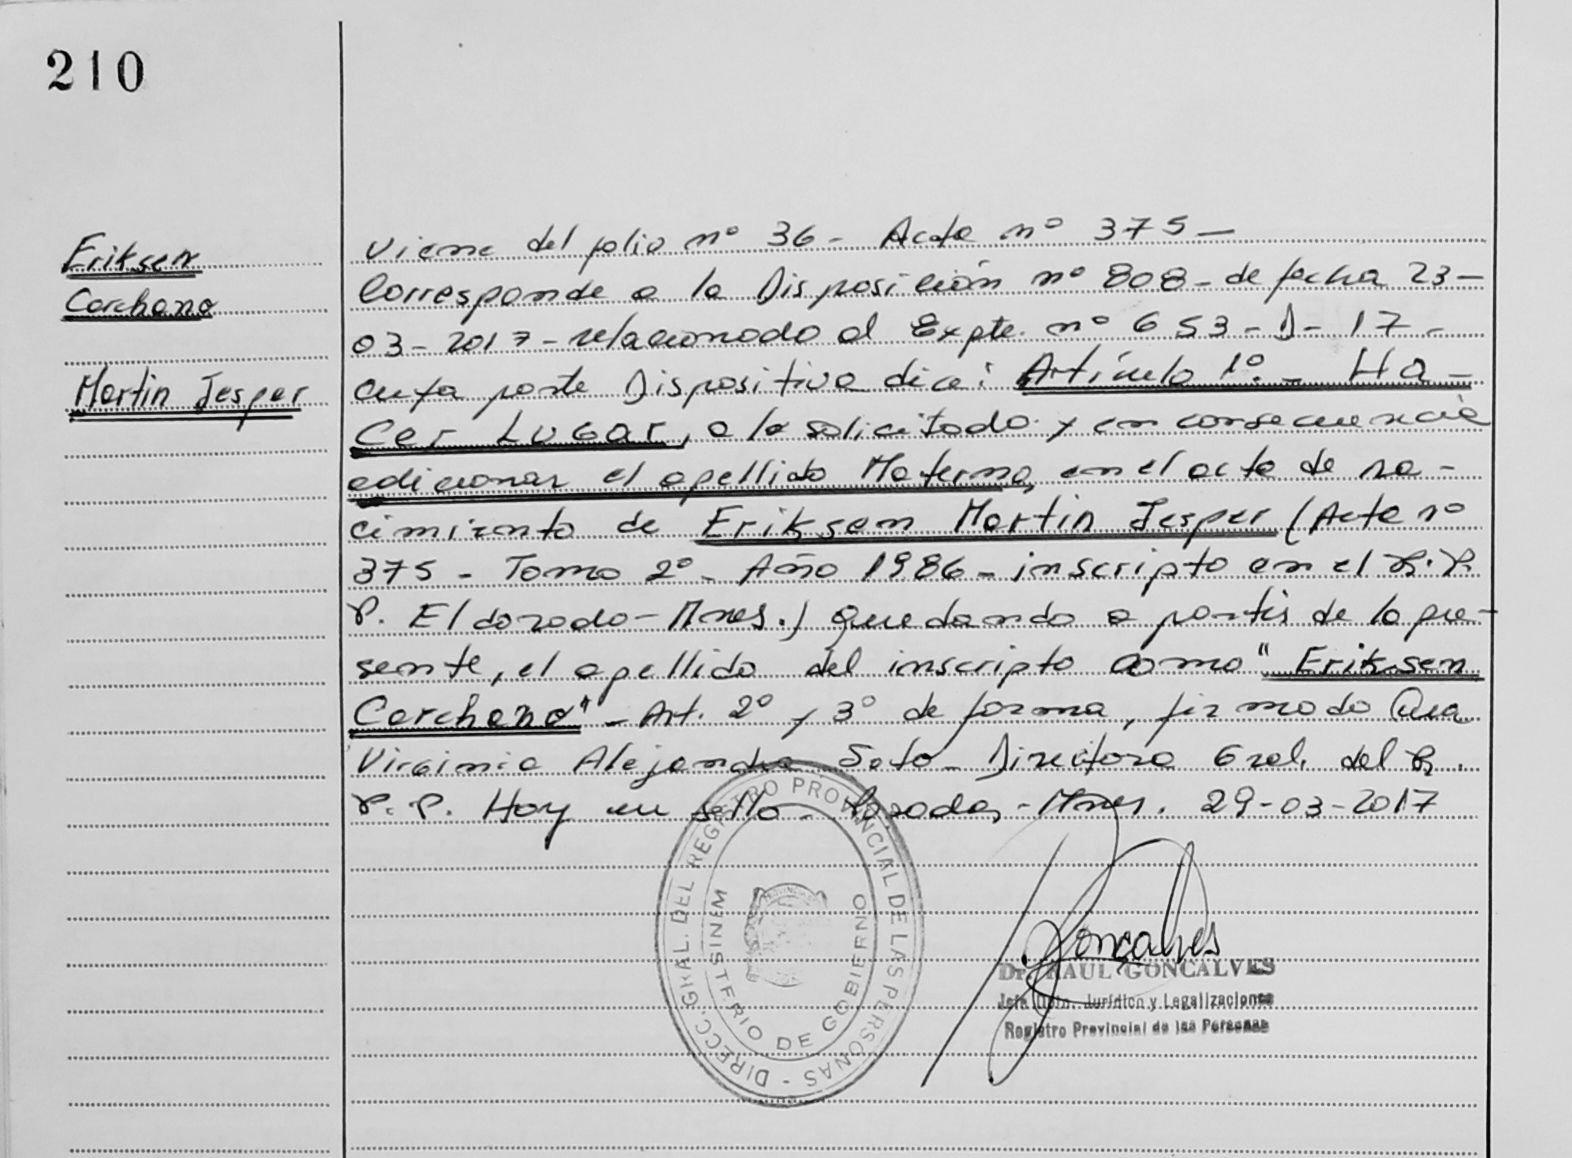 210
Eriksen
Carchano
Martin Jesper
Viene del folio nº 36 - Acta nº 375 -
Corresponde a la Disposición nº 808 - de fecha 23 -
03 - 2017 - relacionado al Expte. nº 653 - D - 17 -
cuya parte Dispositiva dice: Artículo 1º. - Ha -
cer Lugar, a lo solicitado y en consecuencia
adicionar el apellido Materno, en el acta de na -
cimiento de Eriksen Martin Jesper (Acta nº
375 - Tomo 2º - Año 1986 - inscripto en el R.P.
P. Eldorado - Mnes.) quedando a partir de la pre -
sente, el apellido del inscripto como "Eriksen
Carchano" - Art. 2º y 3º de forma, firmado
Virginia Alejandra Soto - Directora Gral. del R.
P.P. Hay un sello - Posadas, - Mnes. 29-03-2017
DIRECC. GRAL. DEL REGISTRO PROVINCIAL DE LAS PERSONAS -
MINISTERIO DE GOBIERNO
Goncalves
Dr. RAUL GONCALVES
Jefe Dpto. Jurídico y Legalizaciones
Registro Provincial de las Personas